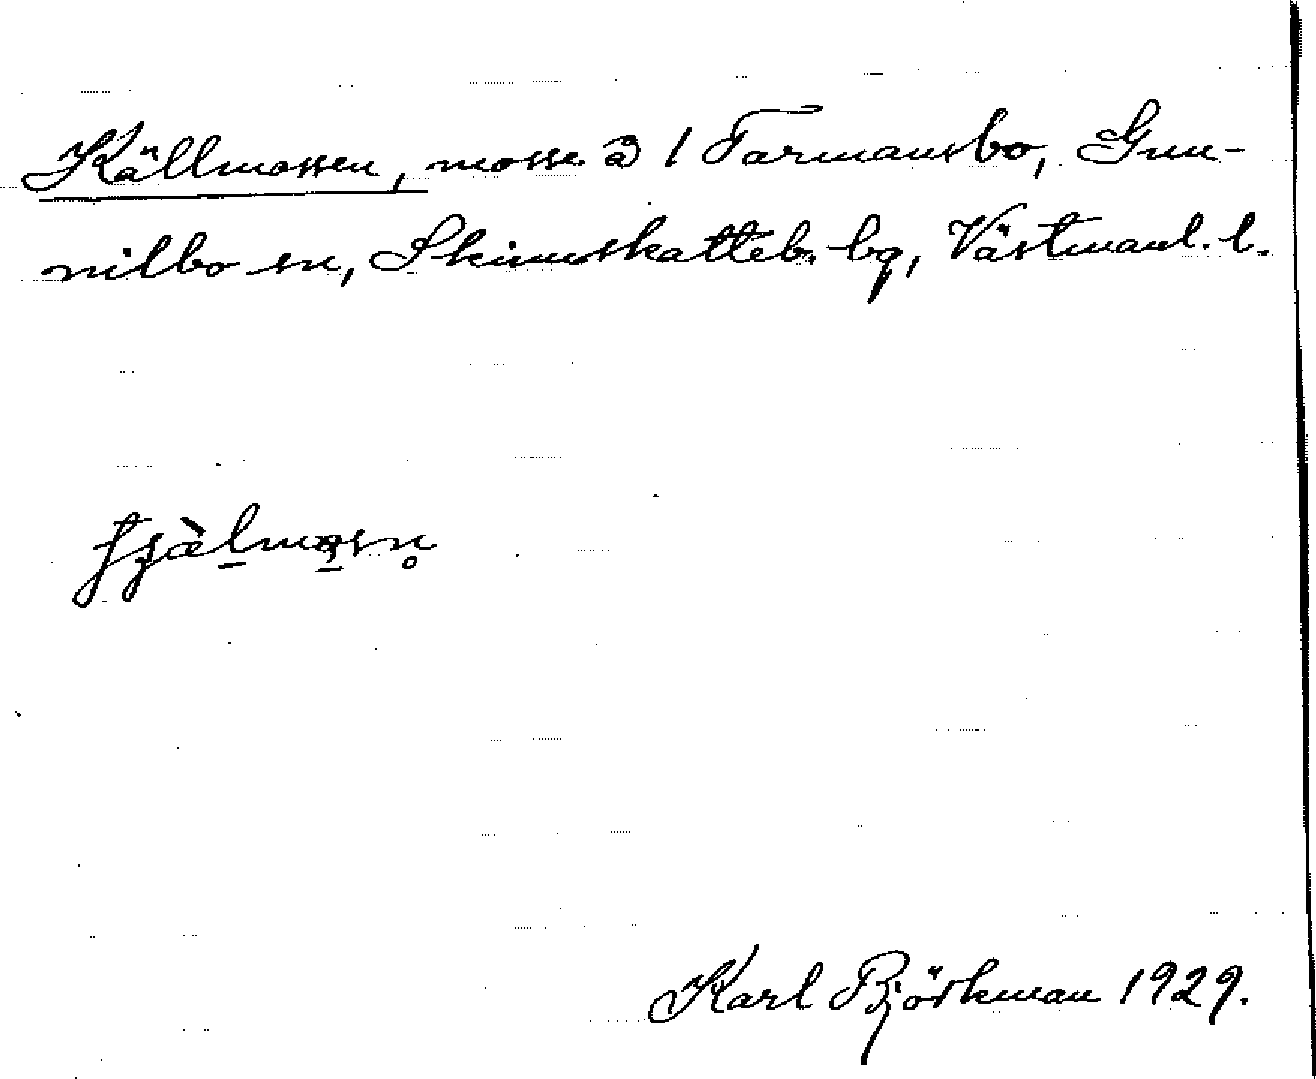 Källmossen, mosse å 1 Farmansbo, Gun-
nilbo sn, Skinnskatteb. bg, Västmanl. l.
Karl Björkman 1929.